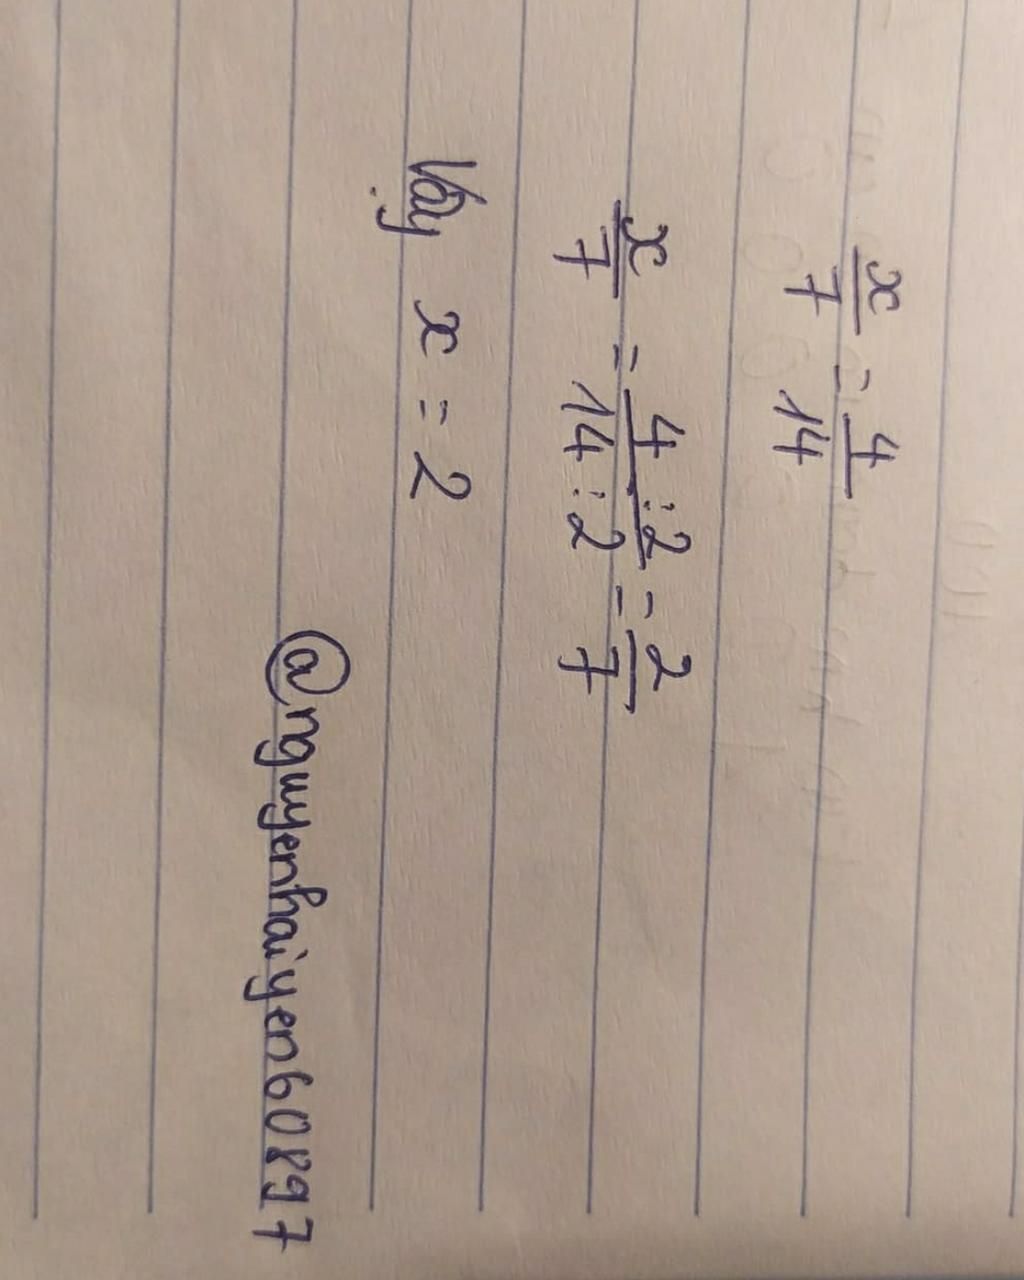 x/7 = 4/14
x/7 = 4:2/14:2 = 2/7
Vậy x = 2
@nguyenhaiyen60897